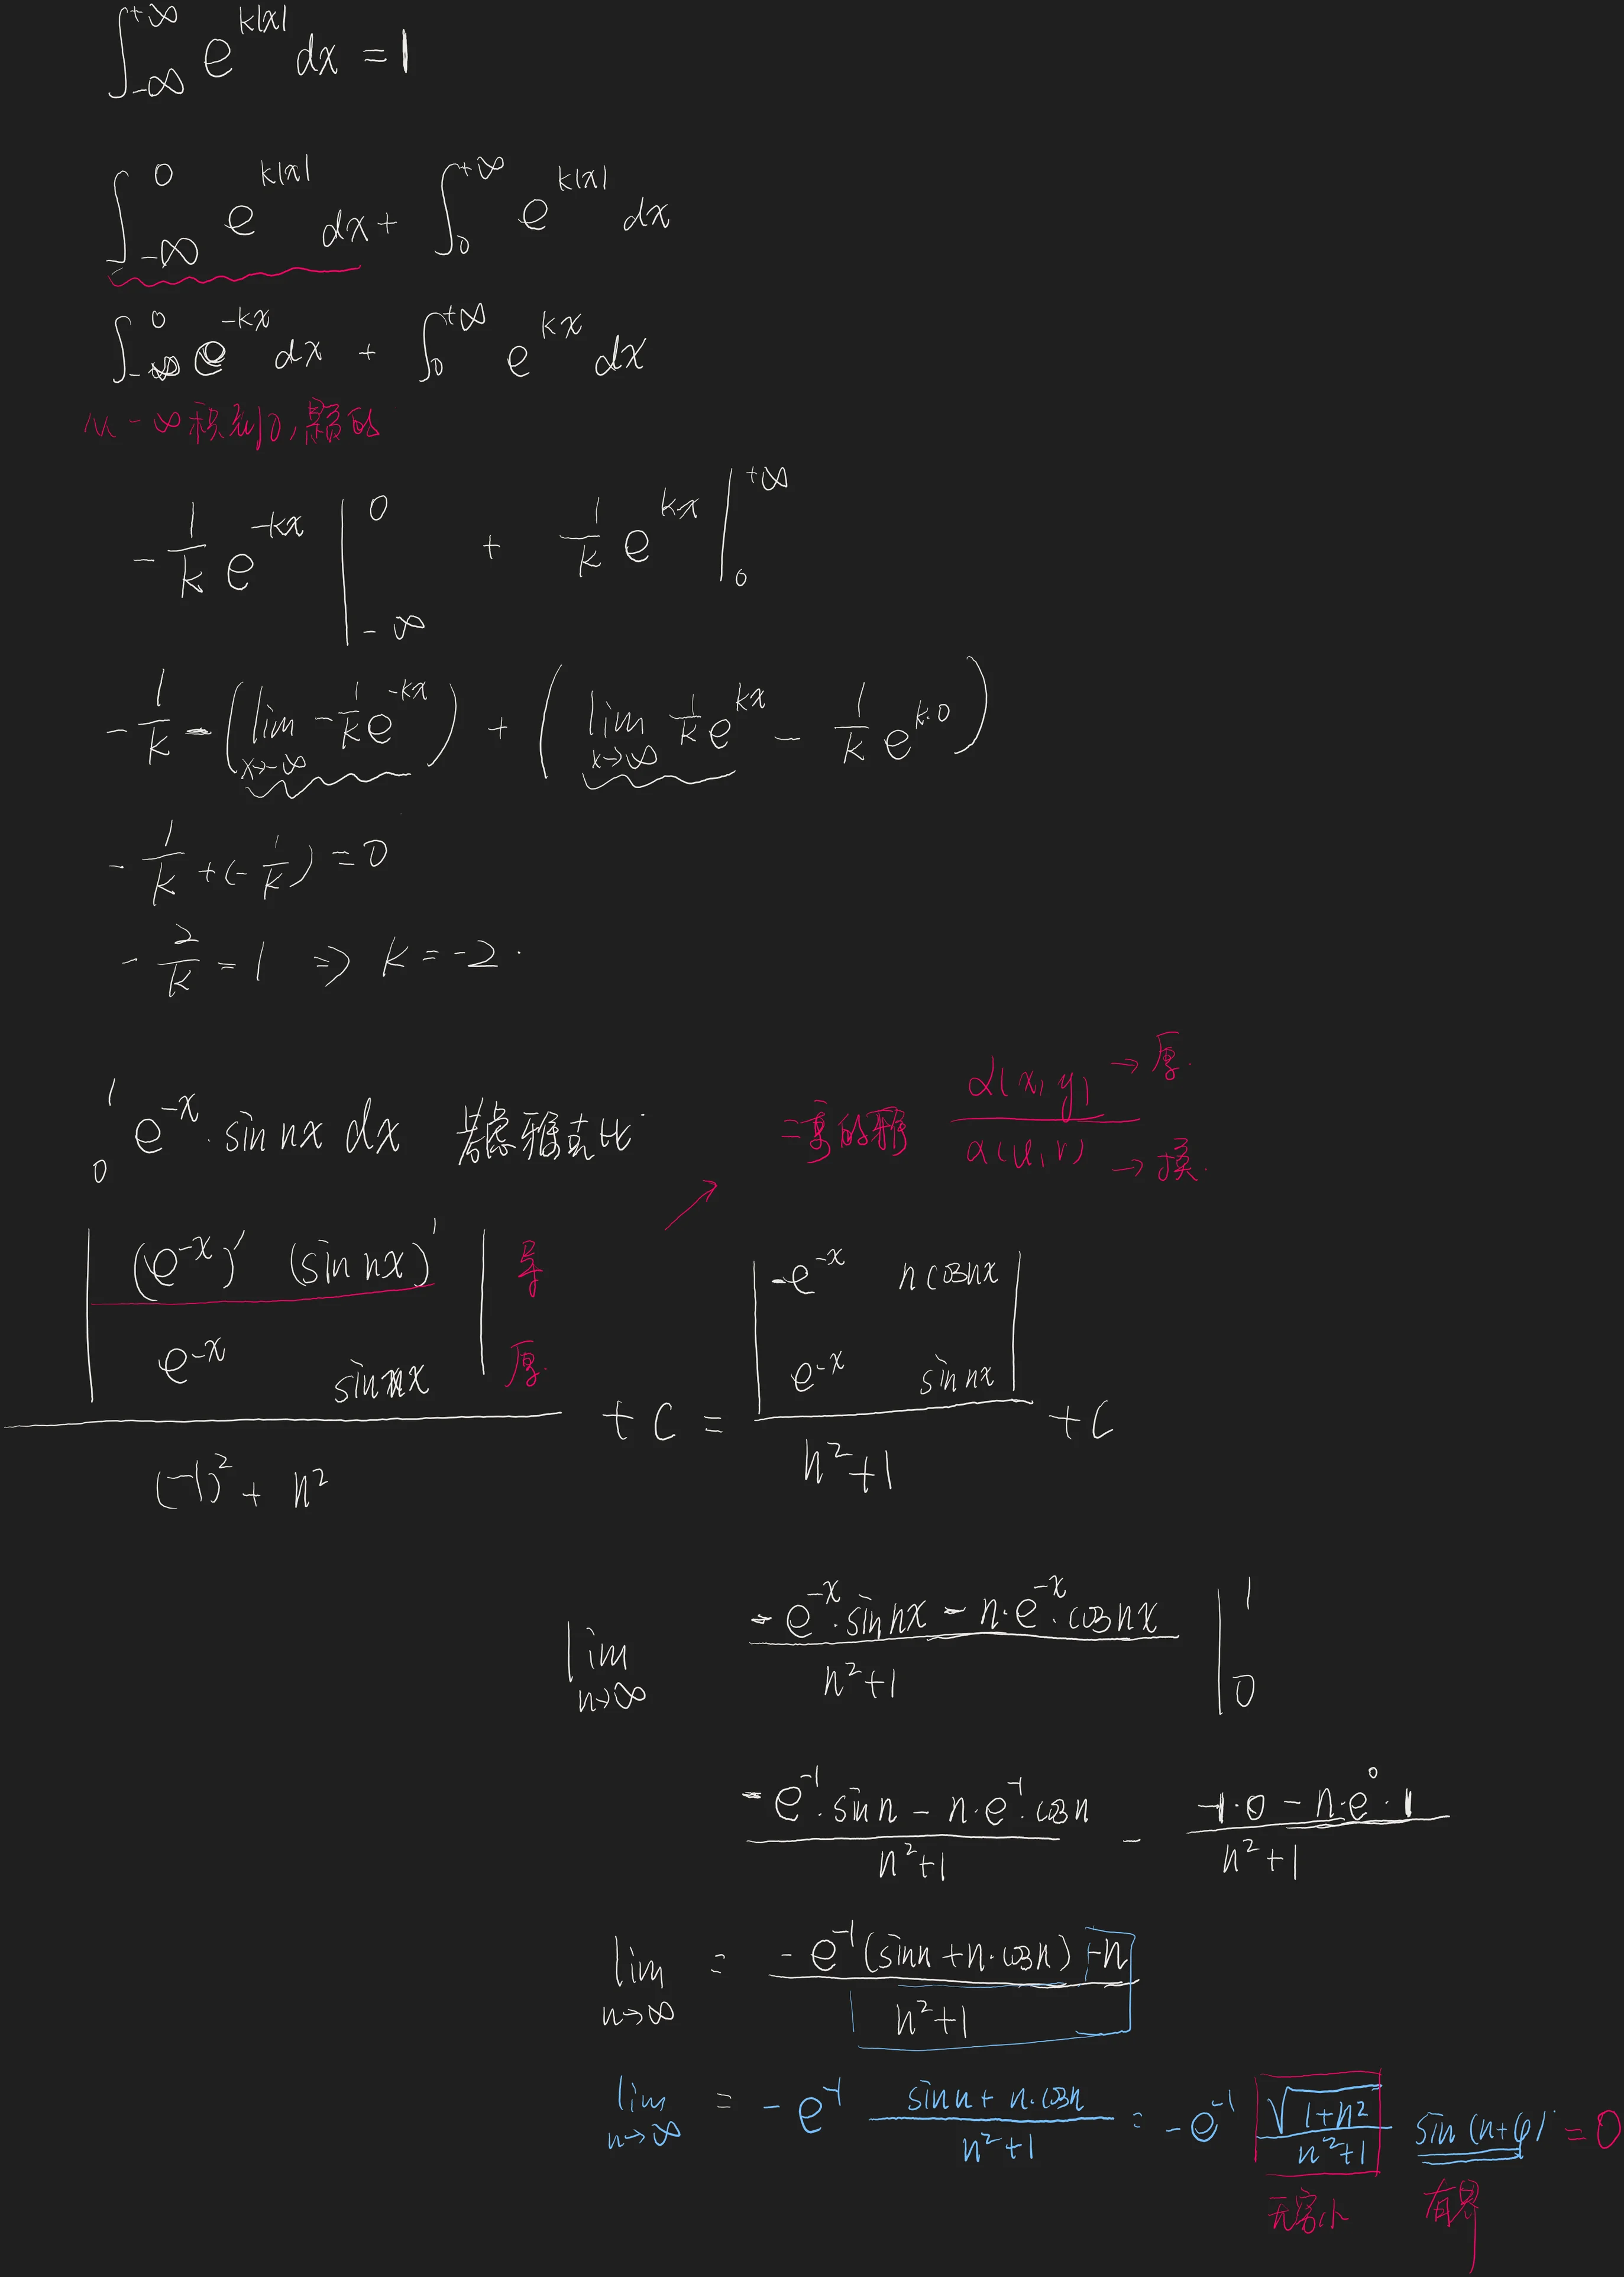 ∫_{-∞}^{+∞} e^{k|x|} dx = 1
∫_{-∞}^{0} e^{k|x|} dx + ∫_{0}^{+∞} e^{k|x|} dx
∫_{-∞}^{0} e^{-kx} dx + ∫_{0}^{+∞} e^{kx} dx
从 -∞ 积到 0, 的
-\frac{1}{k} e^{-kx} |_{-∞}^{0} + \frac{1}{k} e^{kx} |_{0}^{+∞}
-\frac{1}{k} - (lim_{x→-∞} -\frac{1}{k} e^{-kx}) + (lim_{x→∞} \frac{1}{k} e^{kx} - \frac{1}{k} e^{k·0})
-\frac{1}{k} + (-\frac{1}{k}) = 0
-\frac{2}{k} = 1 ⇒ k = -2.
_{0}^{1} e^{-x}·sin nx dx 考虑雅克比
二重的雅 \frac{∂(x,y)}{∂(u,v)} → 原. → 换.
\frac{| (e^{-x})' (sin nx)' ; e^{-x} sin nx |}{(-1)^2 + n^2} + C = \frac{| -e^{-x} n cos nx ; e^{-x} sin nx |}{n^2+1} + C
导
原.
lim_{n→∞} \frac{-e^{-x}·sin nx - n·e^{-x}·cos nx}{n^2+1} |_{0}^{1}
\frac{-e^{-1}·sin n - n·e^{-1}·cos n}{n^2+1} - \frac{-1·0 - n·e^{0}·1}{n^2+1}
lim_{n→∞} = \frac{-e^{-1}(sin n + n·cos n) + n}{n^2+1}
lim_{n→∞} = -e^{-1} \frac{sin n + n·cos n}{n^2+1} = -e^{-1} \frac{\sqrt{1+n^2}}{n^2+1} sin(n+φ) = 0
无穷小 有界